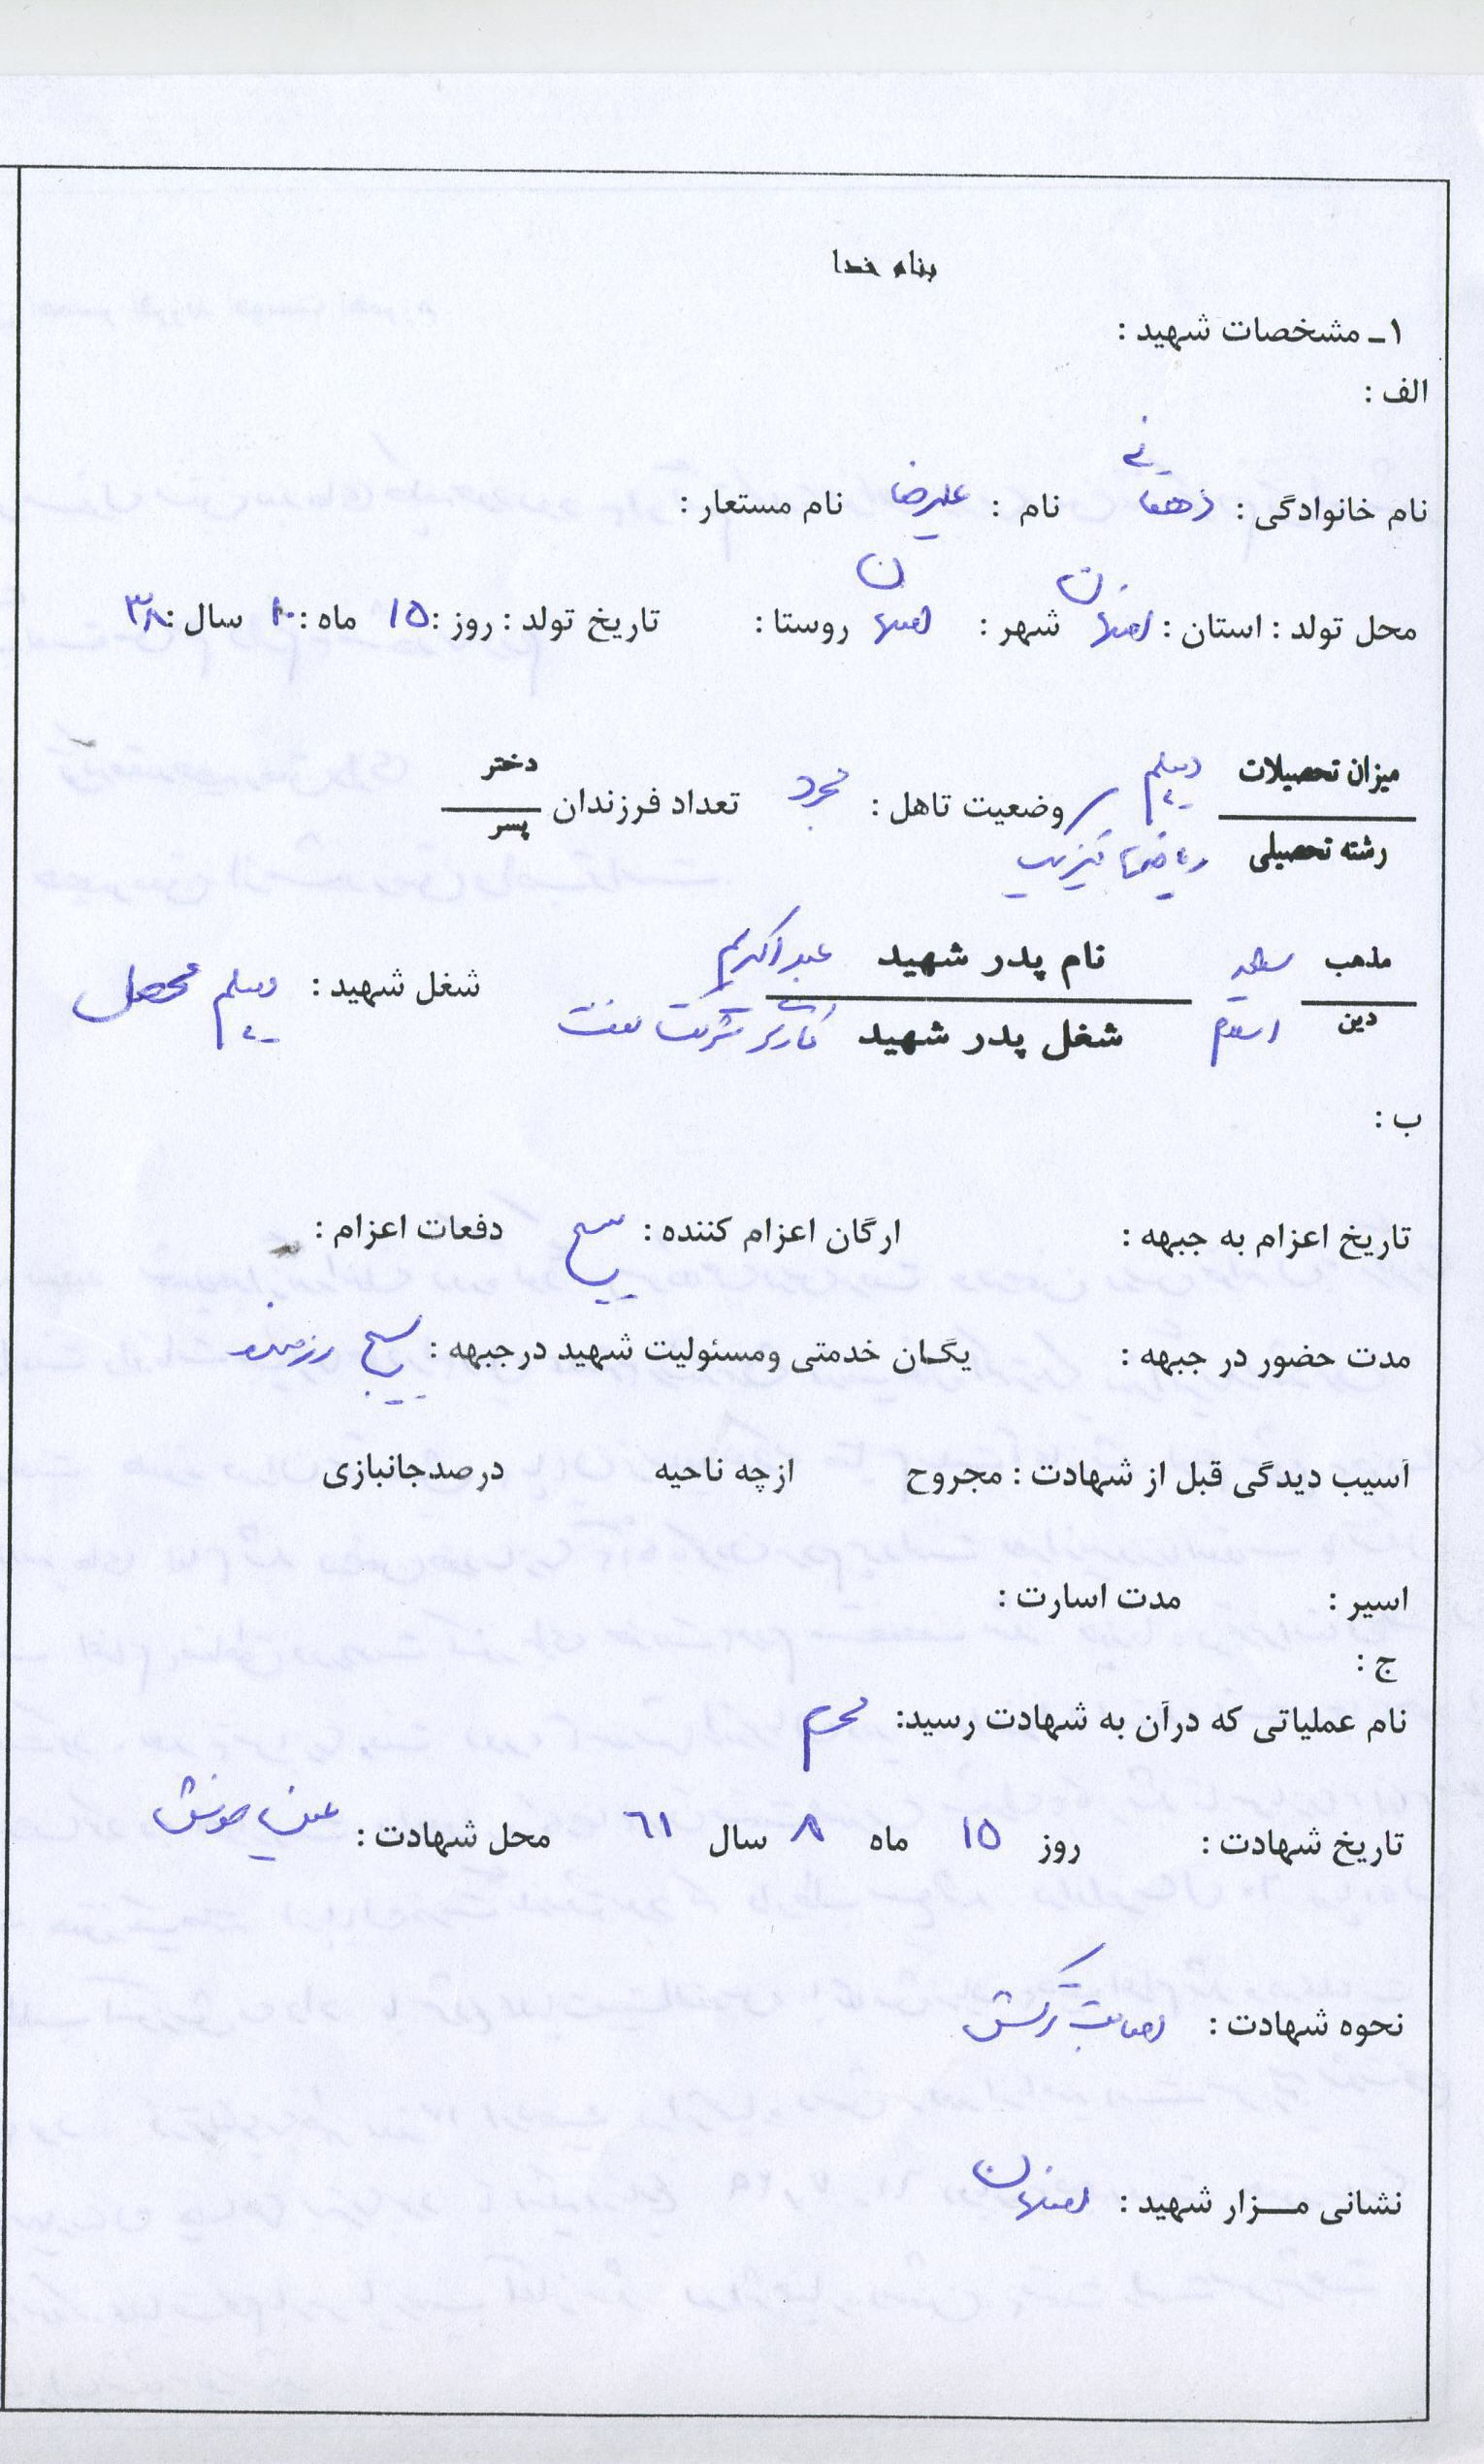 بنام خدا
۱ـ مشخصات شهید :
الف :
نام خانوادگی : نام : علیرضا نام مستعار :
محل تولد : استان : اصفهان شهر : اصفهان روستا : تاریخ تولد : روز : ۱۵ ماه : ۱۰ سال : ۳۸
میزان تحصیلات دیپلم وضعیت تاهل : مجرد تعداد فرزندان دختر
رشته تحصیلی ریاضی فیزیک پسر
مذهب نام پدر شهید عبدالکریم شغل شهید : دیپلم محصل
دین اسلام شغل پدر شهید کارگر شرکت نفت
ب :
تاریخ اعزام به جبهه : ارگان اعزام کننده : بسیج دفعات اعزام :
مدت حضور در جبهه : یگان خدمتی ومسئولیت شهید درجبهه : بسیج رزمنده
آسیب دیدگی قبل از شهادت : مجروح ازچه ناحیه درصدجانبازی
اسیر : مدت اسارت :
ج :
نام عملیاتی که درآن به شهادت رسید: محرم
تاریخ شهادت : روز ۱۵ ماه ۸ سال ۶۱ محل شهادت : عین خوش
نحوه شهادت : اصابت ترکش
نشانی مـزار شهید : اصفهان